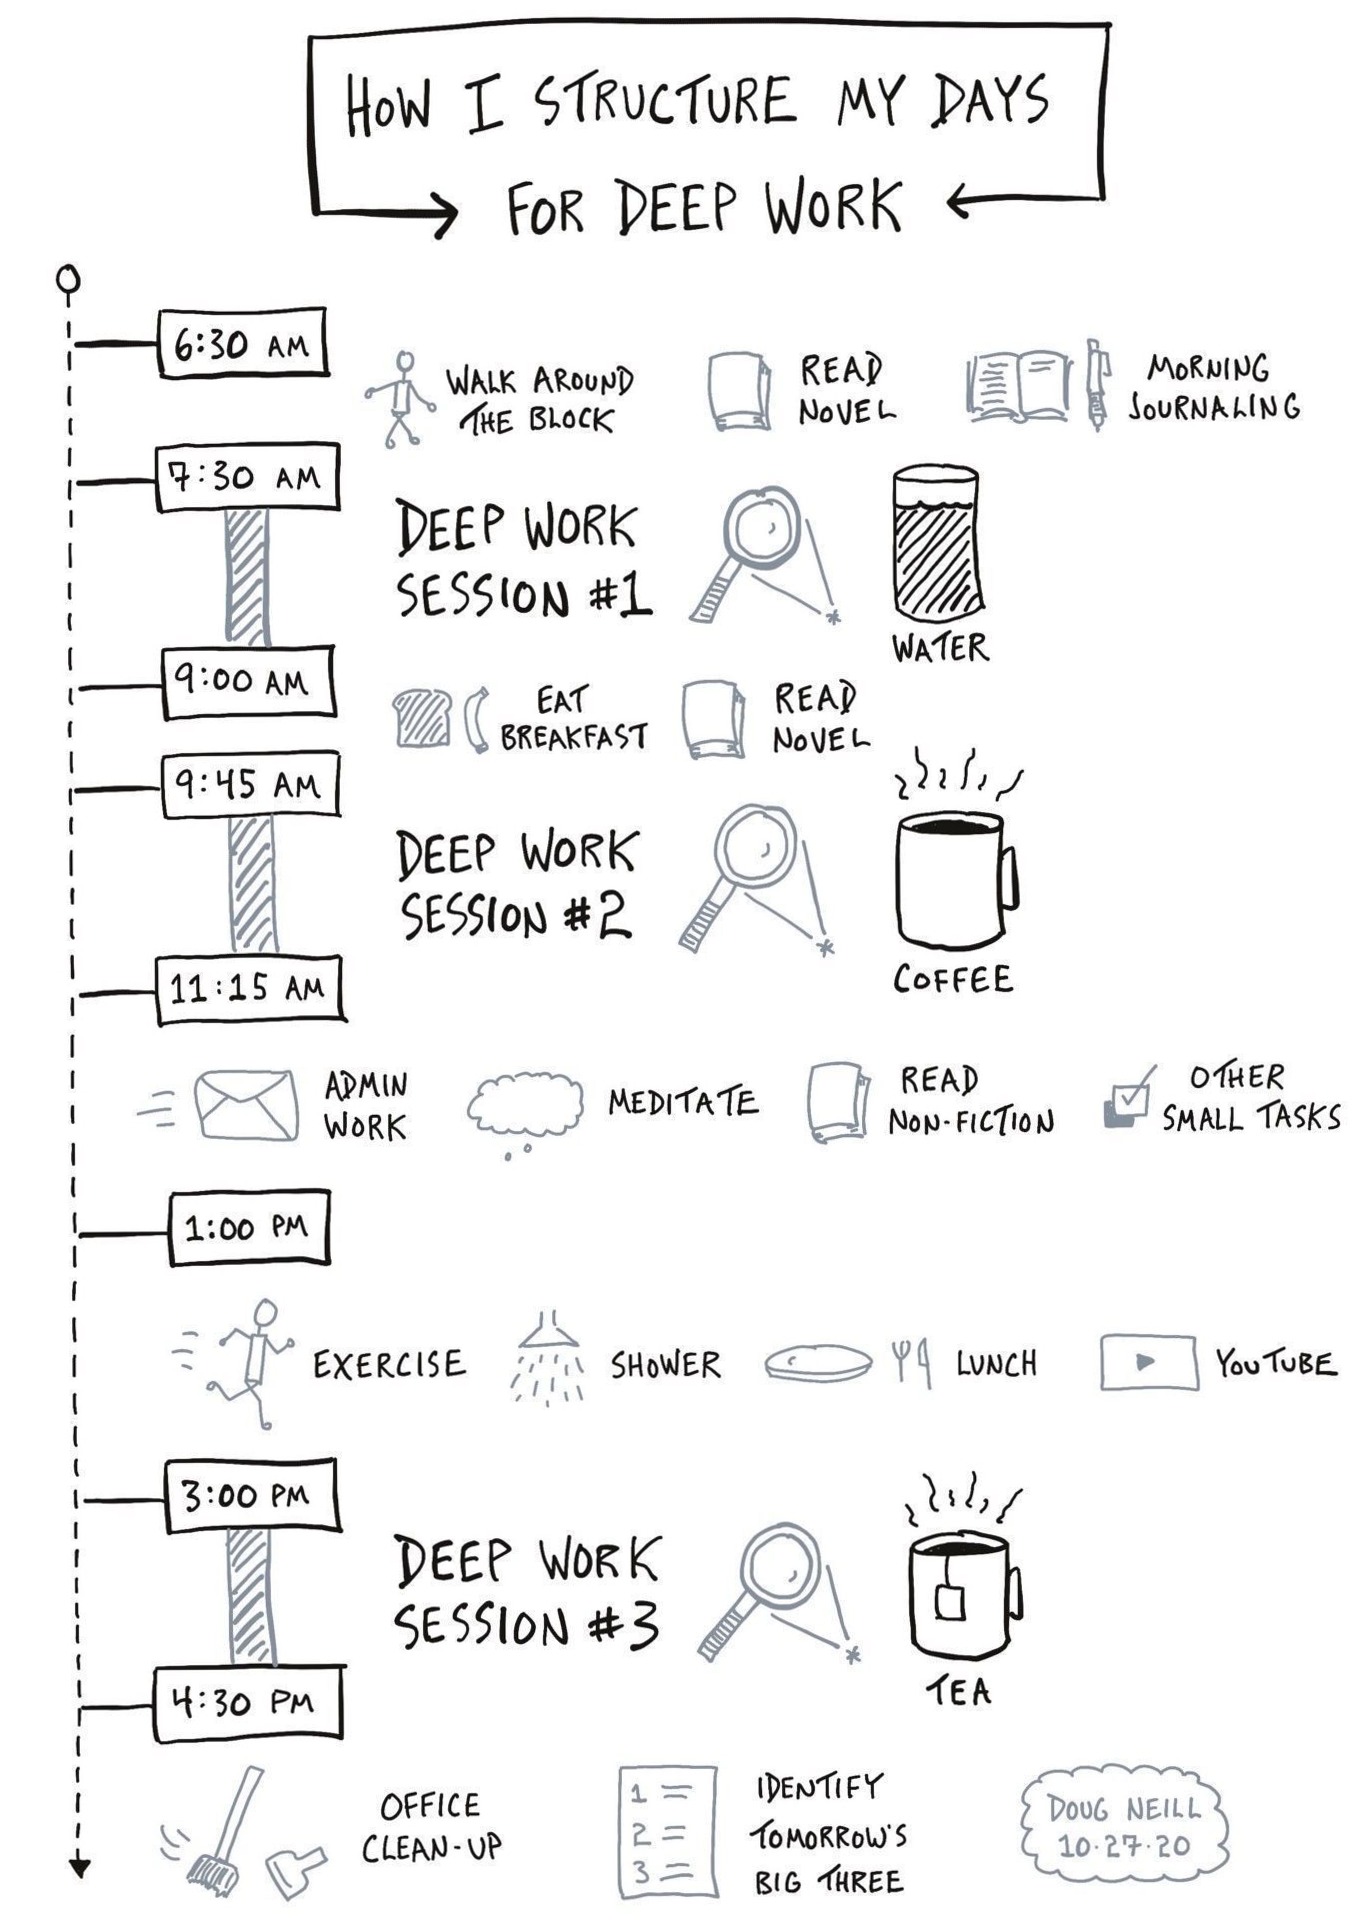 HOW I STRUCTURE MY DAYS
FOR DEEP WORK
6:30 AM
WALK AROUND
THE BLOCK
READ
NOVEL
MORNING
JOURNALING
7:30 AM
DEEP WORK
SESSION #1
WATER
9:00 AM
EAT
BREAKFAST
READ
NOVEL
9:45 AM
DEEP WORK
SESSION #2
COFFEE
11:15 AM
ADMIN
WORK
MEDITATE
READ
NON-FICTION
OTHER
SMALL TASKS
1:00 PM
EXERCISE
SHOWER
LUNCH
YOUTUBE
3:00 PM
DEEP WORK
SESSION #3
TEA
4:30 PM
OFFICE
CLEAN-UP
1
2
3
IDENTIFY
TOMORROW'S
BIG THREE
DOUG NEILL
10.27.20